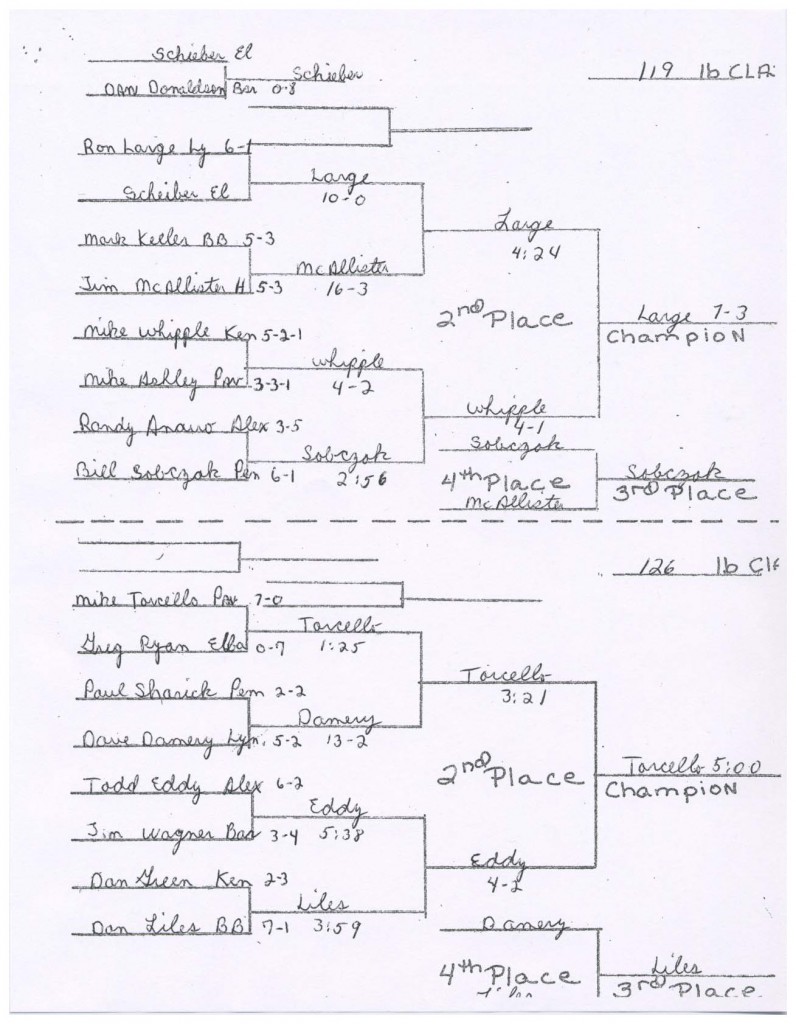 Schieber El
119 lb CLA
Schieber
Dan Donaldson Bar 0-8
Ron Large Ly 6-1
Large
Scheiber El
10-0
Large
Mark Keller BB 5-3
4:24
McAllister
Jim McAllister H 5-3
16-3
2nd Place
Large 7-3
Champion
Mike Whipple Ken 5-2-1
Whipple
Mike Ashley Pav 3-3-1
4-2
Whipple
4-1
Randy Alex 3-5
Sobczak
Sobczak
Bill Sobczak Pem 6-1
2:56
4th Place
Sobczak
3rd Place
McAllister
126 lb Cl
Mike Torcello Pav 7-0
Torcello
Greg Ryan Elba 0-7
1:25
Torcello
3:21
Paul Sharick Pem 2-2
Damery
Dave Damery Lyn. 5-2
13-2
2nd Place
Torcello 5:00
Champion
Todd Eddy Alex 6-2
Eddy
Jim Wagner Bar 3-4
5:38
Eddy
Dan Green Ken 2-3
Liles
Dan Liles BB 7-1
3:59
Damery
4th Place
Liles
3rd Place